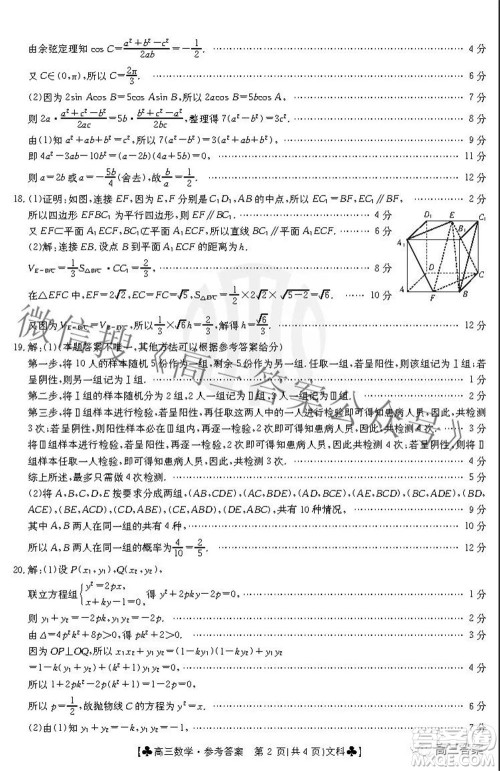 由余弦定理知 cos C=(a²+b²-c²)/(2ab)=-1/2. 4 分
又 C∈(0,π),所以 C=2π/3. 6 分
(2)因为 2sin Acos B=5cos Asin B,所以 2acos B=5bcos A, 7 分
则 2a·(a²+c²-b²)/(2ac)=5b·(b²+c²-a²)/(2bc),整理得 7(a²-b²)=3c². 8 分
由(1)知 a²+b²+ab=c²,所以 7(a²-b²)=3(a²+ab+b²) 9 分
即 4a²-3ab-10b²=(a-2b)(4a+5b)=0, 11 分
则 a=2b 或 a=-5b/4(舍去),故 b/a=1/2. 12 分
18.(1)证明:如图,连接 EF,因为 E,F 分别是 C₁D₁,AB 的中点,所以 EC₁=BF,EC₁∥BF, 2 分
所以四边形 EFBC₁ 为平行四边形,则 EF∥BC₁. 4 分
又 EF⊂平面 A₁ECF,BC₁⊄平面 A₁ECF,所以直线 BC₁∥平面 A₁ECF. 6 分
(2)解:连接 EB.设点 B 到平面 A₁ECF 的距离为 h.
=1/3 S △BFC·CC₁=2/3, 8 分
在△EFC 中,EF=2√2,EC=FC=√5,S△EFC=1/2×2√2×√(5-2)=√6. 10 分
=1/3×√6h=2/3,解得 h=√6/3. 12 分
19.解:(1)(本题答案不唯一,其他方法可以根据参考答案给分)
第一步,将 10 人的样本随机 5 份作为一组,剩余 5 份作为另一组.任取一组,若呈阳性,则该组记为Ⅰ组;若呈阴性,则另一组记为Ⅰ组. 1 分
第二步,将Ⅰ组的样本任取 2 个作为一组,若呈阳性,则记为Ⅱ组;若呈阴性,剩余 3 人记为Ⅲ组. 2 分
第三步,将Ⅱ组样本进行检验,若呈阳性,再任取一人进行检验,即可得知患病人员,共检测 3 次;若呈阴性,则另一人即为患病人员,共检测 3 次. 3 分
将Ⅲ组样本任取一人进行检验,若呈阳性,即可得知患病人员,共检测 3 次;若呈阴性,则将Ⅲ组样本任取一人检验,即可得知患病人员,共检测 4 次.
综上所述,最多只需做 4 次检测. 5 分
(2)将 A,B,C,D,E 按要求分成两组,(AB,CDE),(AC,BDE),(AD,BCE),(AE,BCD),(BC,ADE),(BD,
ACE),(BE,ACD),(CD,ABE),(CE,ABD),(DE,ABC),共有 10 种情况, 9 分
其中 A,B 两人在同一组的共有 4 种, 11 分
所以 A,B 两人在同一组的概率为 4/10=2/5. 12 分
20.解:(1)设 P(x₁,y₁),Q(x₂,y₂),
联立方程组{y²=2px, x+ky-1=0, 1 分
则 y₁+y₂=-2pk,y₁y₂=-2p. 3 分
由 Δ=4p²k²+8p>0,可得 pk²+2>0.
因为 OP⊥OQ,所以 x₁x₂+y₁y₂=(1-ky₁)(1-ky₂)+y₁y₂
=1-k(y₁+y₂)+(k²+1)y₁y₂=0, 4 分
所以 1+2pk²-2p(k²+1)=0, 5 分
所以 p=1/2,故抛物线 C 的方程为 y²=x. 6 分
(2)由(1)知 y₁+y₂=-k, 7 分
♣高三数学·参考答案 第 2 页(共 4 页)文科♣
微信搜《高三答案公众号》
高三答案